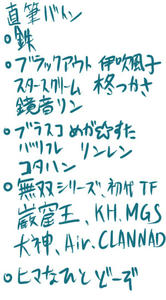 直筆バトン
○鉄
○ブラックアウト 伊吹風子
スタースクリーム 柊つかさ
鏡音リン
○ブラスコ めが☆すた
バリフレ リンレン
コタハン
○無双シリーズ、初代TF
巌窟王、KH、MGS
大神、Air、CLANNAD
○ヒマなひとどーぞ